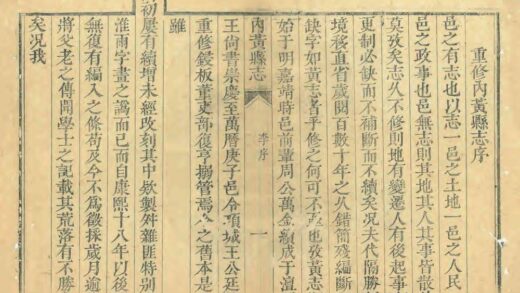 重修內黃縣志序
邑之有志也以志一邑之土地一邑之人民
邑之政事也邑無志則其地其人其事皆散
莫攷矣志久不修則地有變遷人有後起事
更制必缺而不補斷而不續矣况夫代隔勝
境移直省歲閱百數十年之久錯簡殘編斷
缺字如黃志者乎修之何可不亟也攷黃志
始于明嘉靖時邑前輩周公萬金續成于澶
內黃縣志 李序 一
王尚書崇慶至萬曆庚子邑令項城王公延
重修鋟板董吏部復亨搦管焉今之舊本是
雖
初屢有續增未經攷刻其中欵製舛雜匪特別
淮爾字畫之譌而已而自康熙十八年以後
無復有編入之條苟及今不爲徵採歲月逾
將父老之傳聞學士之記載其荒落有不勝
矣况我